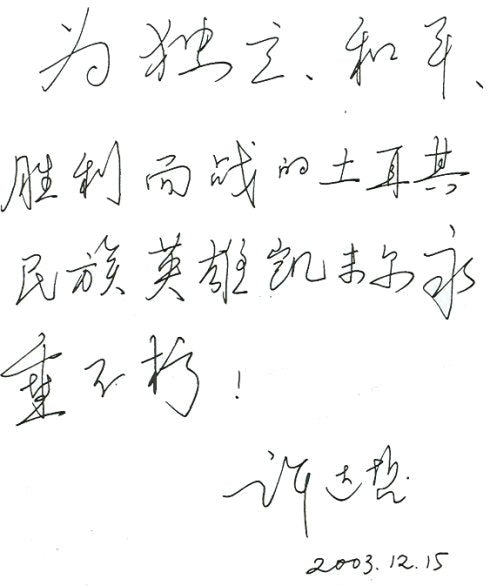 为独立、和平、
胜利而战的土耳其
民族英雄凯末尔永
垂不朽！
许达哲
2003.12.15